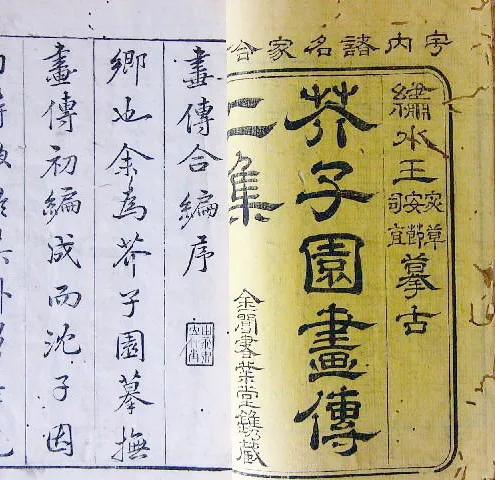 宇内諸名家合
繡水王宓草安節司直摹古
芥子園畫傳
二集
金閶書業堂鐫藏
畫傳合編序
鄉也余為芥子園摹撫
畫傳初編成而沈子因